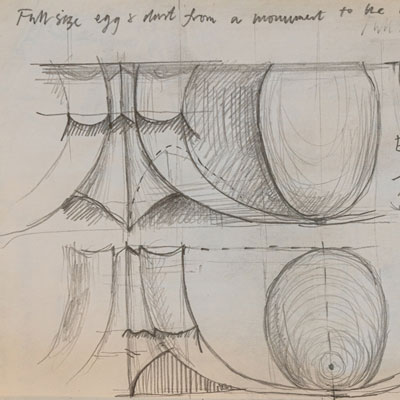 Full size egg & dart from a monument to be